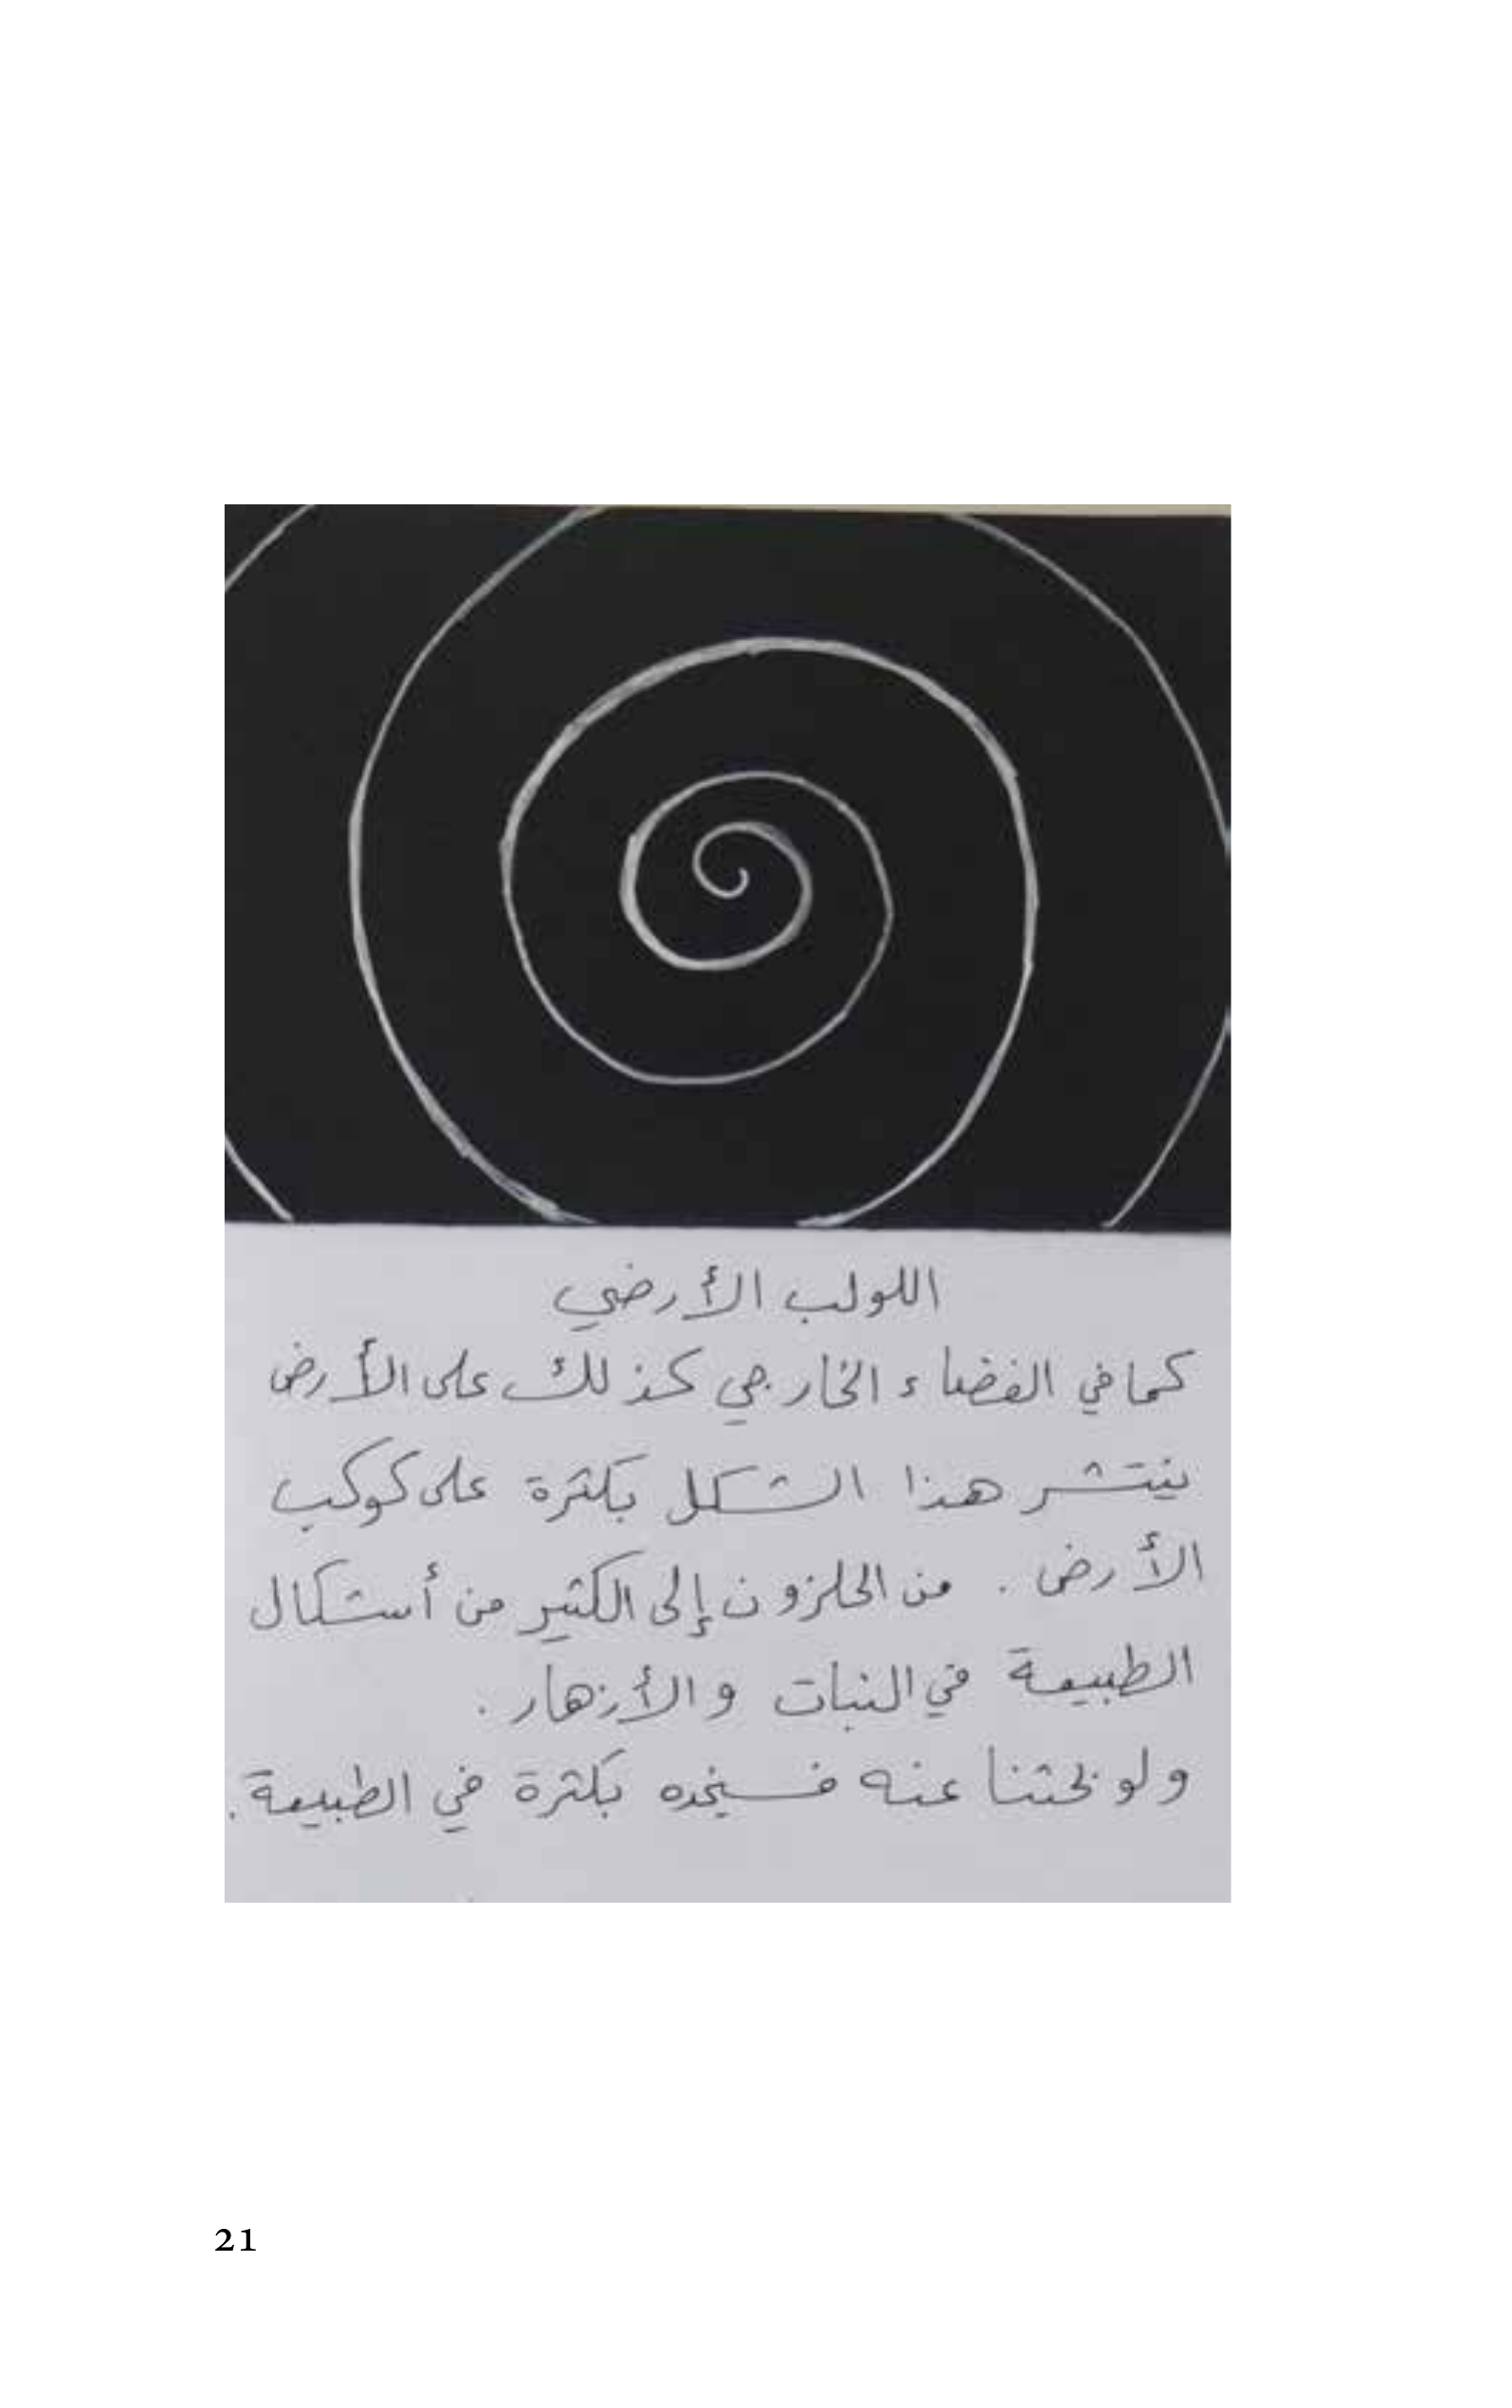 اللولب الأرضي
كما في الفضاء الخارجي كذلك على الأرض
ينتشر هذا الشكل بكثرة على كوكب
الأرض . من الحلزون إلى الكثير من أشكال
الطبيعة في النبات والأزهار .
ولو بحثنا عنه فسنجده بكثرة في الطبيعة .
21